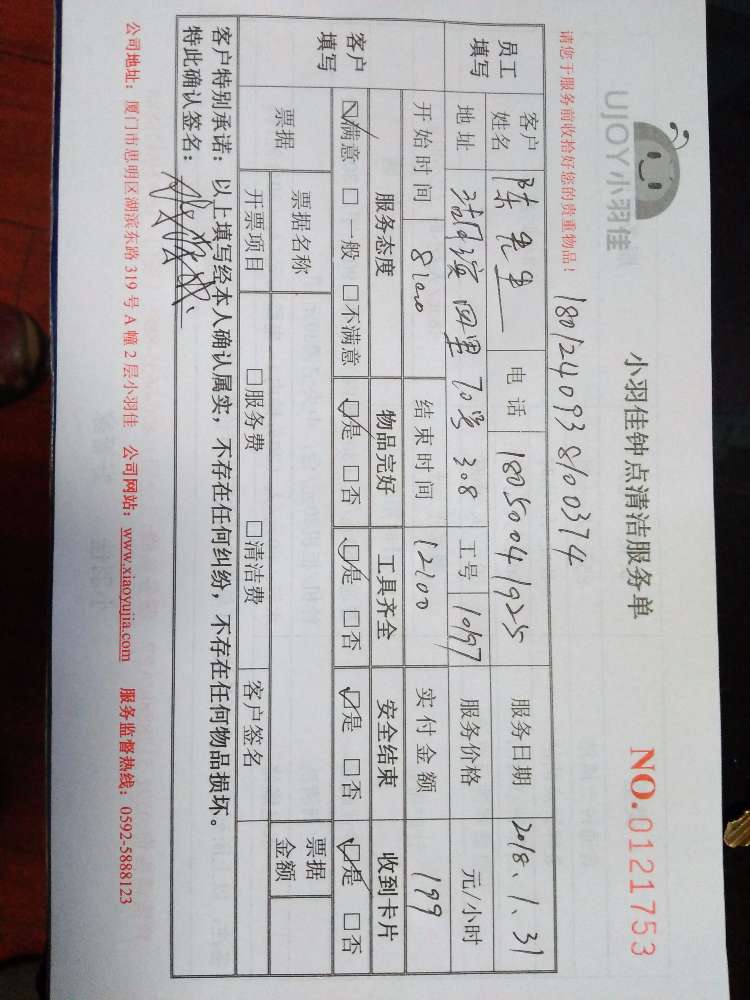 UJOY小羽佳
小羽佳钟点清洁服务单
NO.0121753
1801240938100374
请您于服务前收拾好您的贵重物品!
员工填写
客户姓名 陈先生 电话 18050041925 服务日期 2018.1.31
地址 湖滨四里70号308 工号 10197 服务价格 元/小时
开始时间 8:00 结束时间 12:00 实付金额 199
客户填写
服务态度 物品完好 工具齐全 安全结束 收到卡片
☑满意 □一般 □不满意 ☑是 □否 ☑是 □否 ☑是 □否 ☑是 □否
票据 票据名称 票据金额
开票项目 □服务费 □清洁费 客户签名
客户特别承诺:以上填写经本人确认属实,不存在任何纠纷,不存在任何物品损坏。
特此确认签名:
公司地址:厦门市思明区湖滨东路319号A幢2层小羽佳 公司网站:www.xiaoyujia.com 服务监督热线:0592-5888123